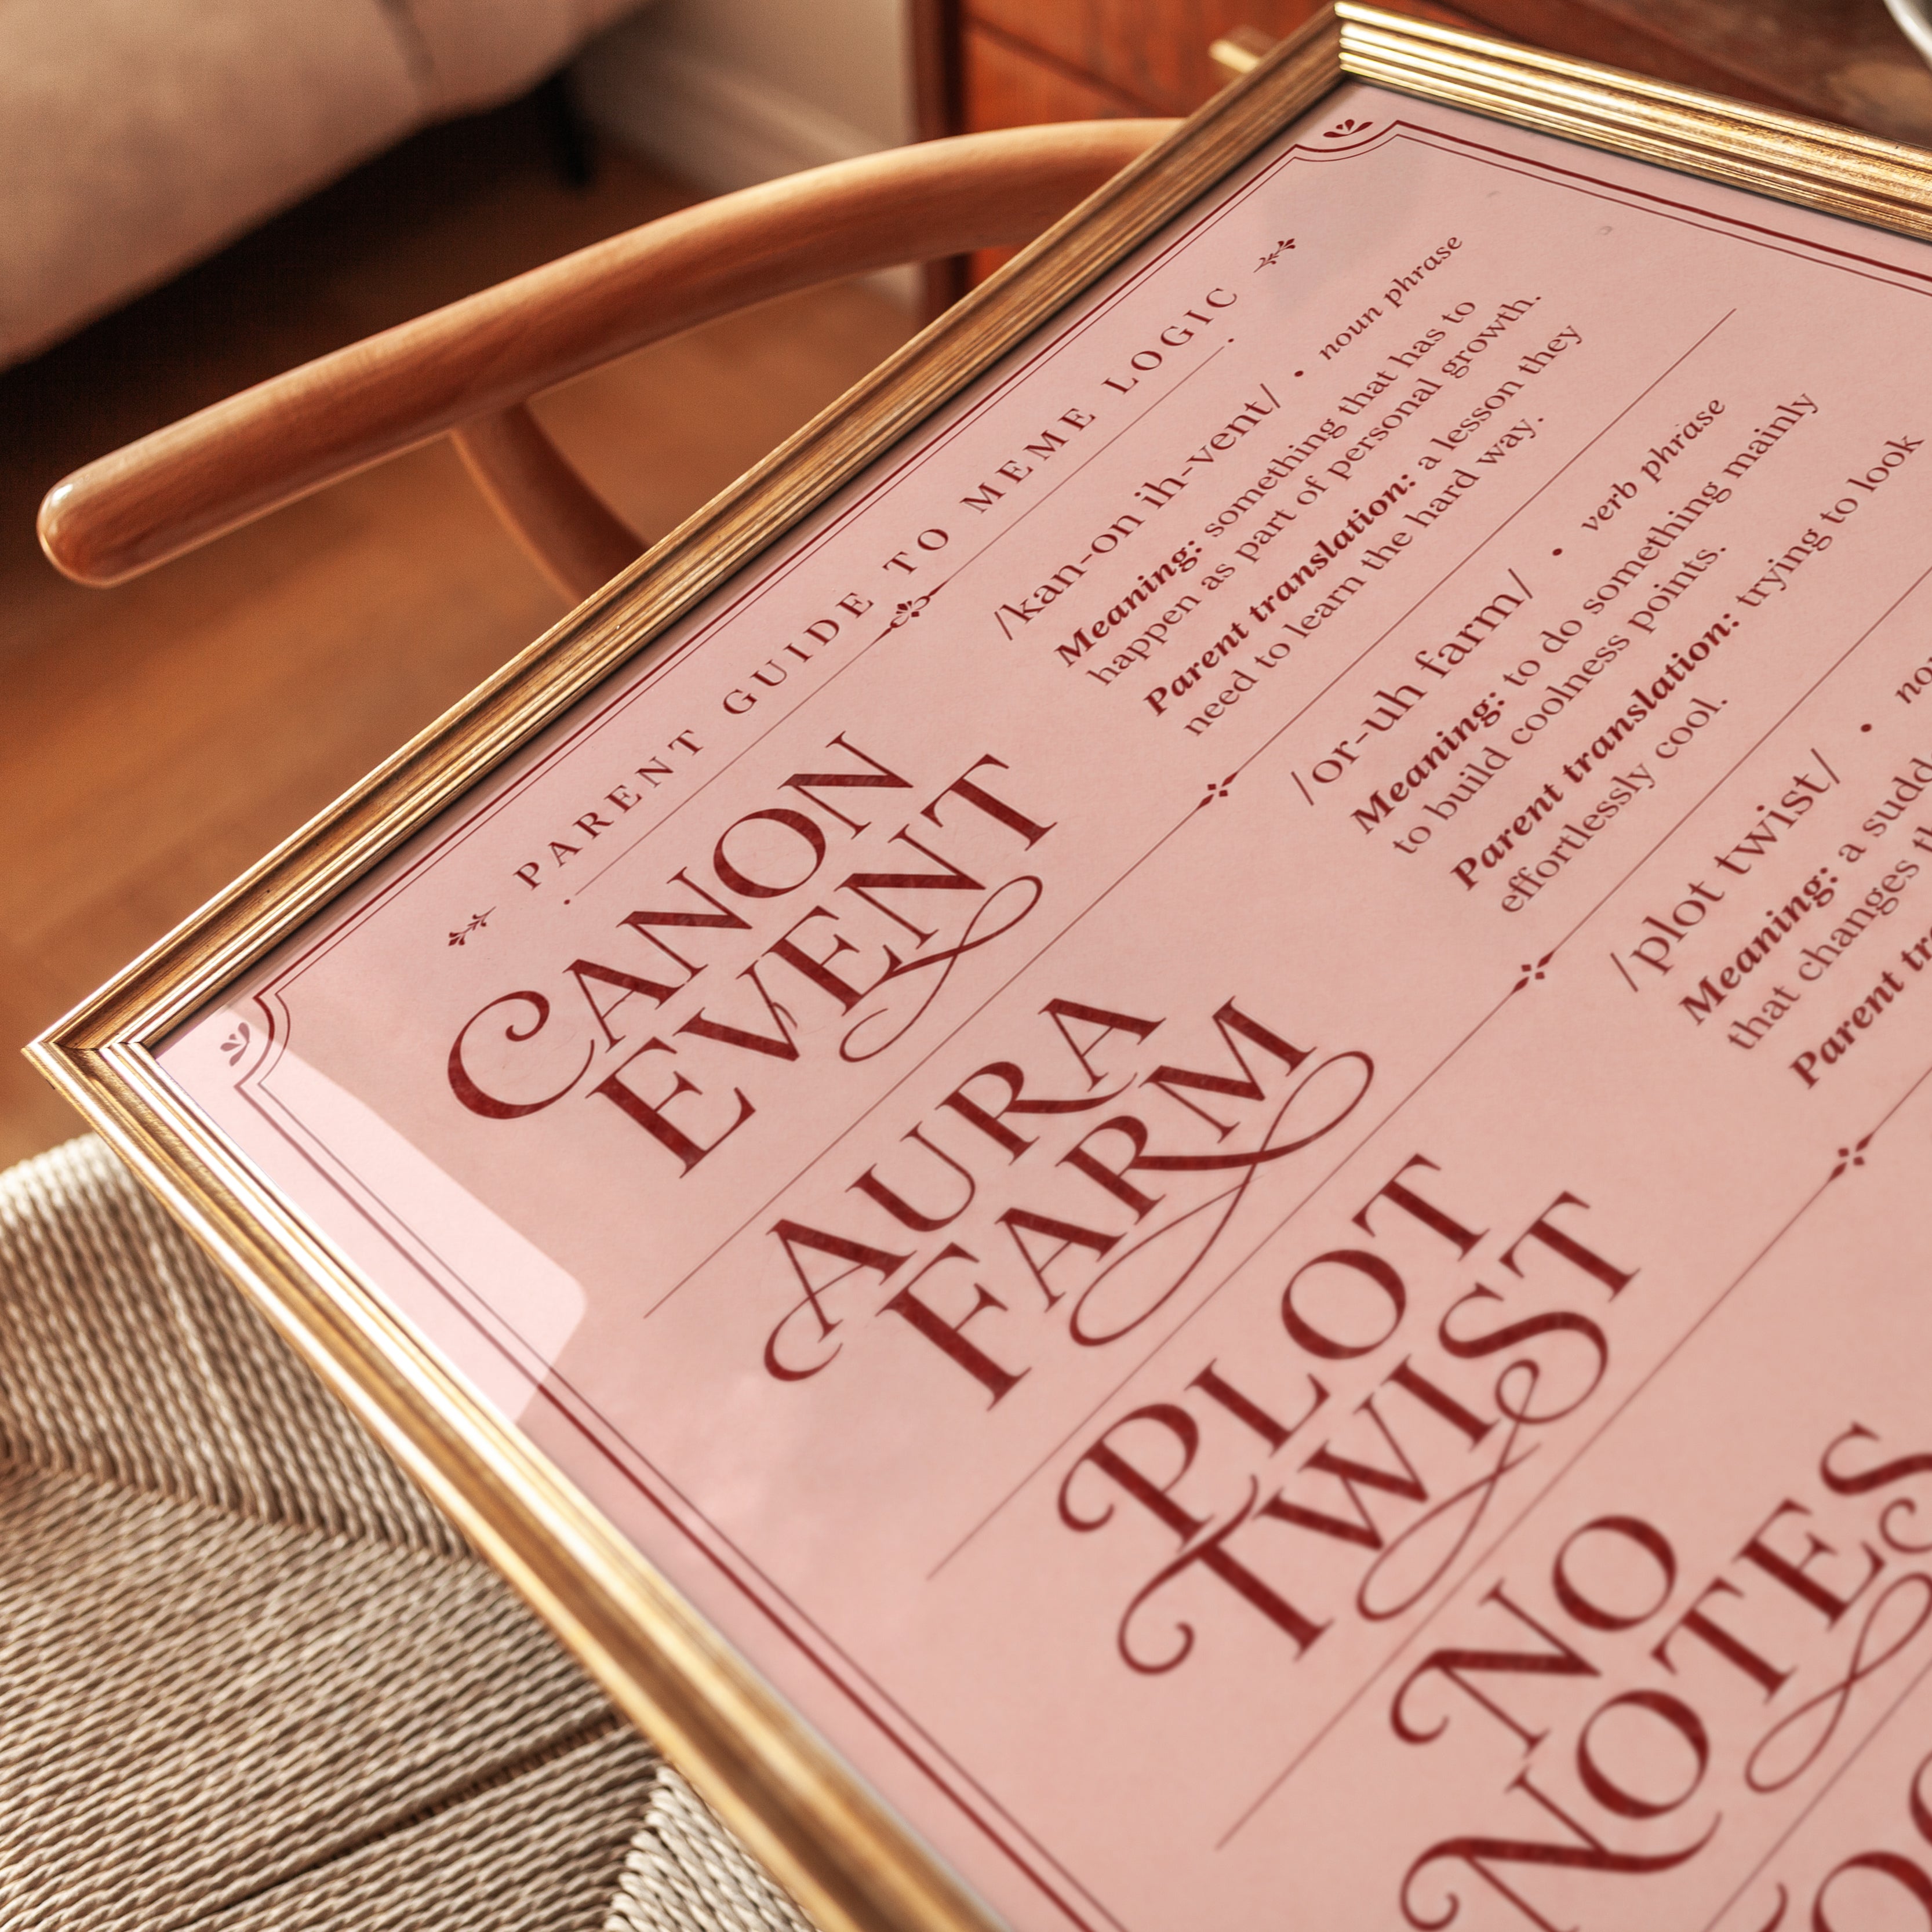 PARENT GUIDE TO MEME LOGIC
CANON
EVENT
/kan-on ih-vent/ • noun phrase
Meaning: something that has to
happen as part of personal growth.
Parent translation: a lesson they
need to learn the hard way.
AURA
FARM
/or-uh farm/ • verb phrase
Meaning: to do something mainly
to build coolness points.
Parent translation: trying to look
effortlessly cool.
PLOT
TWIST
/plot twist/ •
Meaning: a
that changes
Parent
NO
NOTES